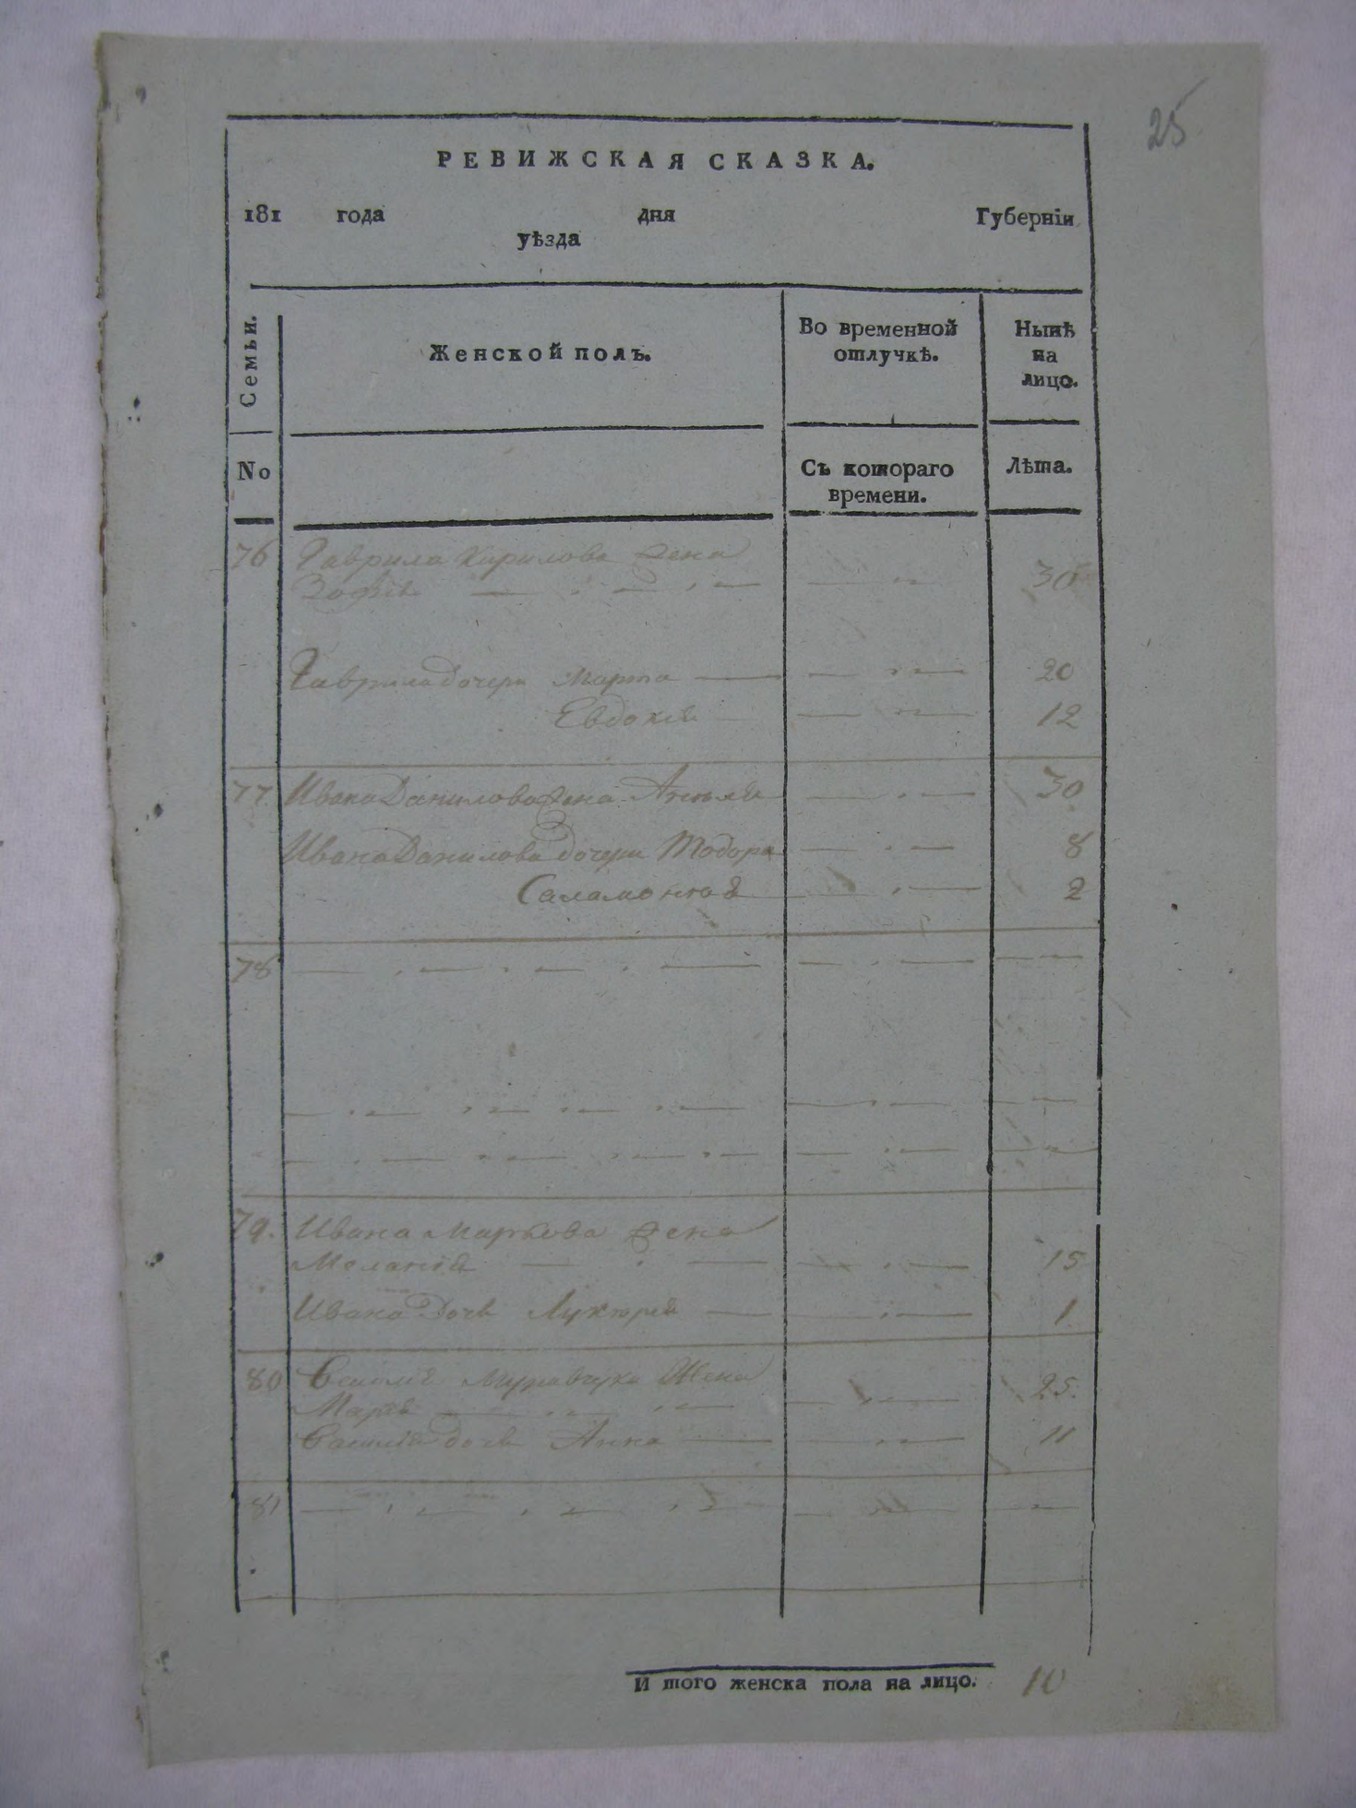 25
РЕВИЖСКАЯ СКАЗКА.
181 года дня Губерніи
уѣзда
Семьи.
Женской полъ.
Во временной отлучкѣ.
Нынѣ на лицо.
No
Съ котораго времени.
Лѣта.
76 Гаврила Кирилова жена
Зофія 30
Гаврила дочери Марта 20
Евдокія 12
77 Ивана Данилова жена 30
Ивана Данилова дочери Тодора 8
Саламонія 2
78
79. Ивана Маркова жена
Меланія 15
Ивана дочь 1
80 жена
Марія 25.
дочь Анна 11
81
И того женска пола на лицо. 10